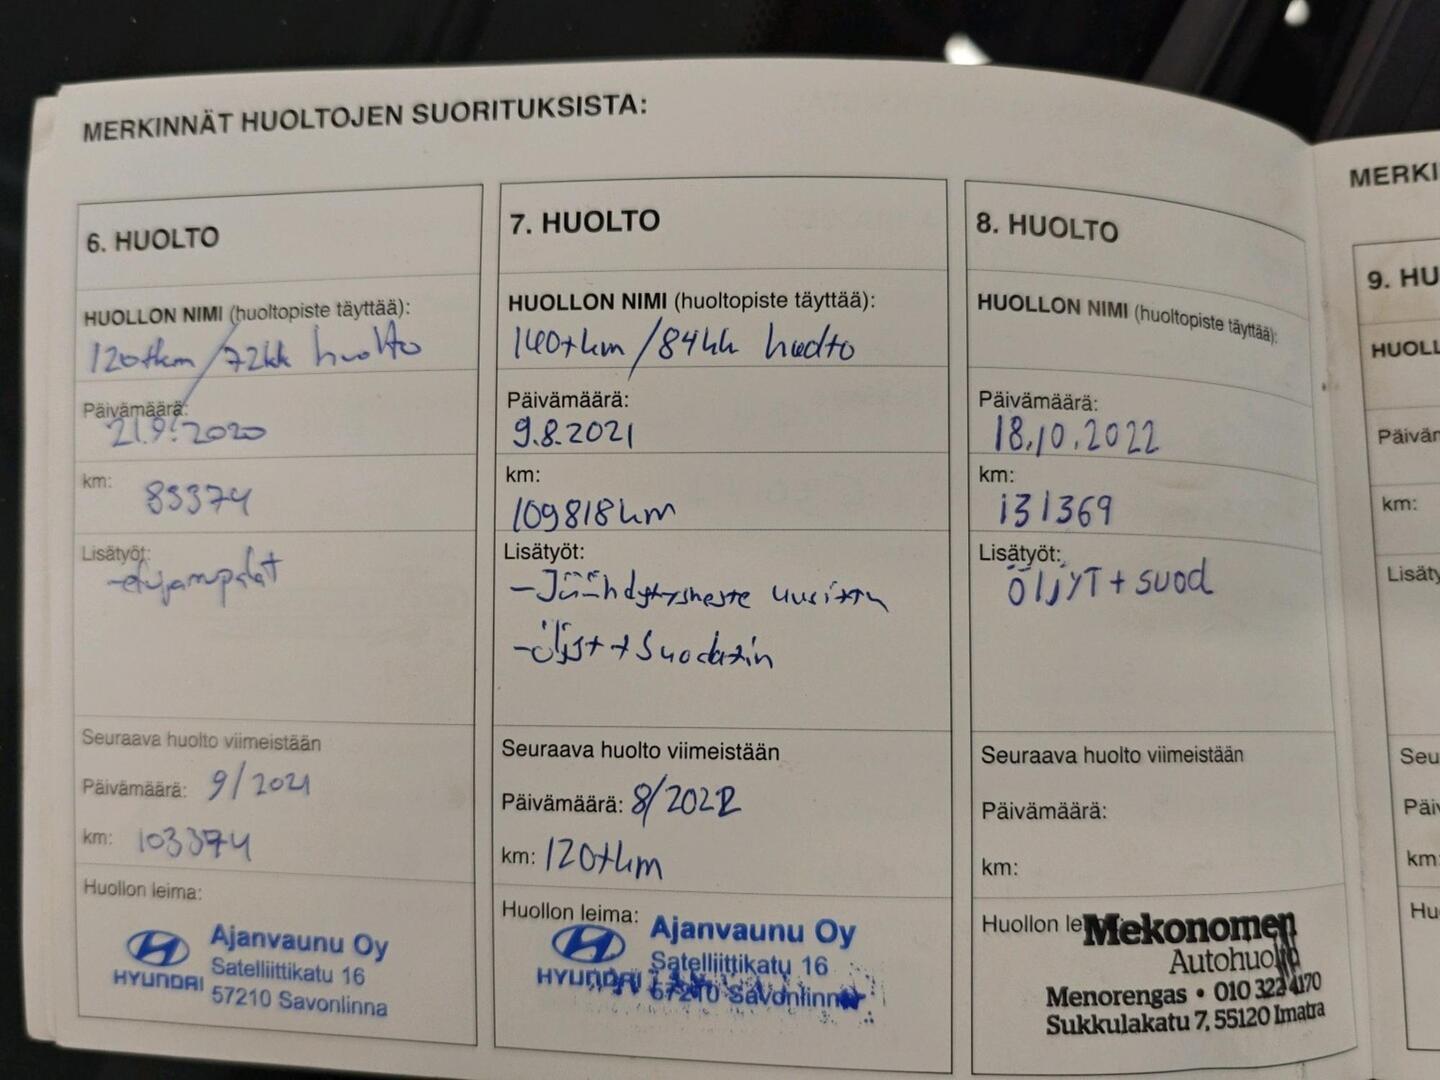 MERKINNÄT HUOLTOJEN SUORITUKSISTA:
6. HUOLTO
HUOLLON NIMI (huoltopiste täyttää):
120tkm/72kk huolto
Päivämäärä:
21.9.2020
km: 83374
Lisätyöt:
Seuraava huolto viimeistään
Päivämäärä: 9/2021
km: 103374
Huollon leima:
HYUNDAI
Ajanvaunu Oy
Satelliittikatu 16
57210 Savonlinna
7. HUOLTO
HUOLLON NIMI (huoltopiste täyttää):
140tkm/84kk huolto
Päivämäärä:
9.8.2021
km:
109818km
Lisätyöt:
-Jäähdytysneste uusittu
-öljyt + suodatin
Seuraava huolto viimeistään
Päivämäärä: 8/2022
km: 120tkm
Huollon leima:
HYUNDAI
Ajanvaunu Oy
Satelliittikatu 16
57210 Savonlinna
8. HUOLTO
HUOLLON NIMI (huoltopiste täyttää):
Päivämäärä:
18.10.2022
km:
131369
Lisätyöt:
öljyt + suod
Seuraava huolto viimeistään
Päivämäärä:
km:
Huollon le
Mekonomen
Autohuolto
Menorengas • 010 322 4170
Sukkulakatu 7, 55120 Imatra
MERKI
9. HU
HUOLL
Päivän
km:
Lisäty
Seu
Päiv
km:
Hu